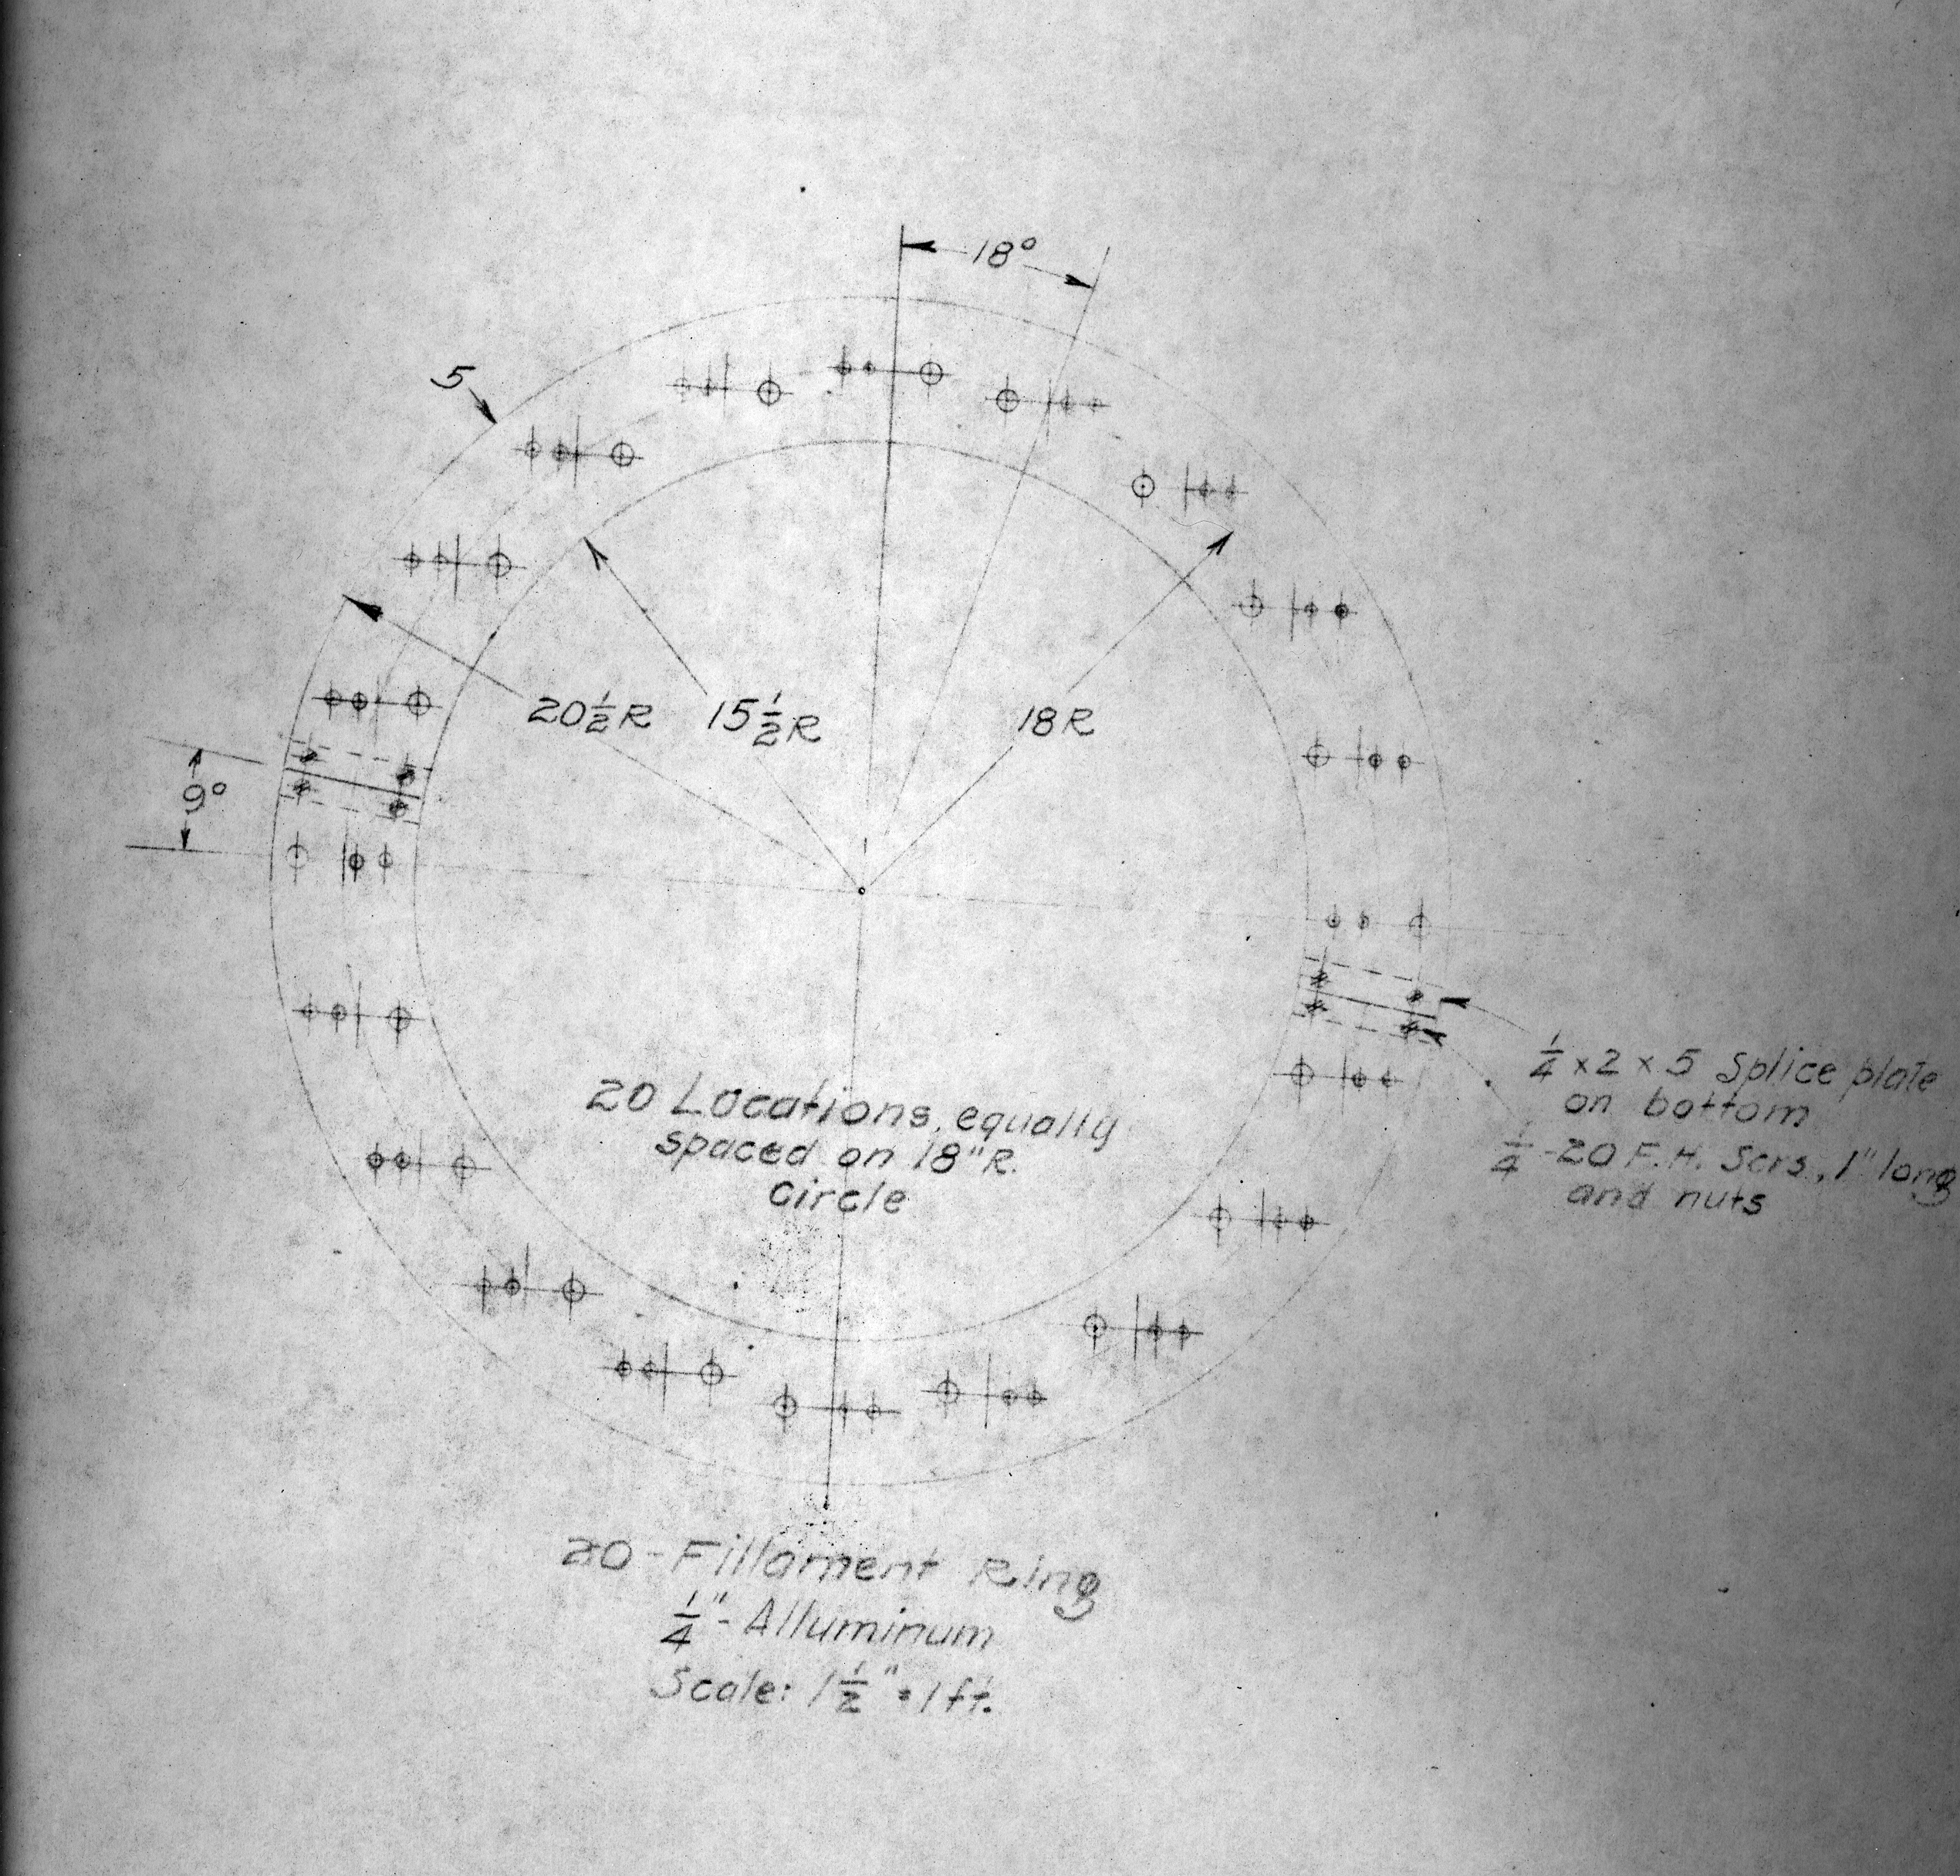 18°
5
20 1/2 R
15 1/2 R
18 R
9°
1/4 x 2 x 5 Splice plate
on bottom
1/4 -20 F.H. Scrs., 1" long
and nuts
20 Locations, equally
spaced on 18" R.
Circle
20 - Fillament Ring
1/4" - Alluminum
Scale: 1 1/2" = 1 ft.